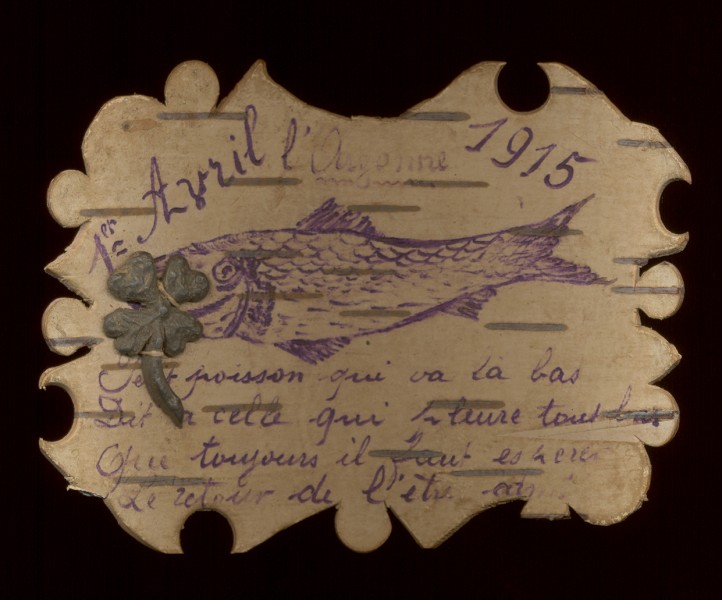 1er Avril l'Argonne 1915
Petit poisson qui va La bas
Dit a celle qui pleure tout bas
Que toujours il faut esperer
Le retour de l'être